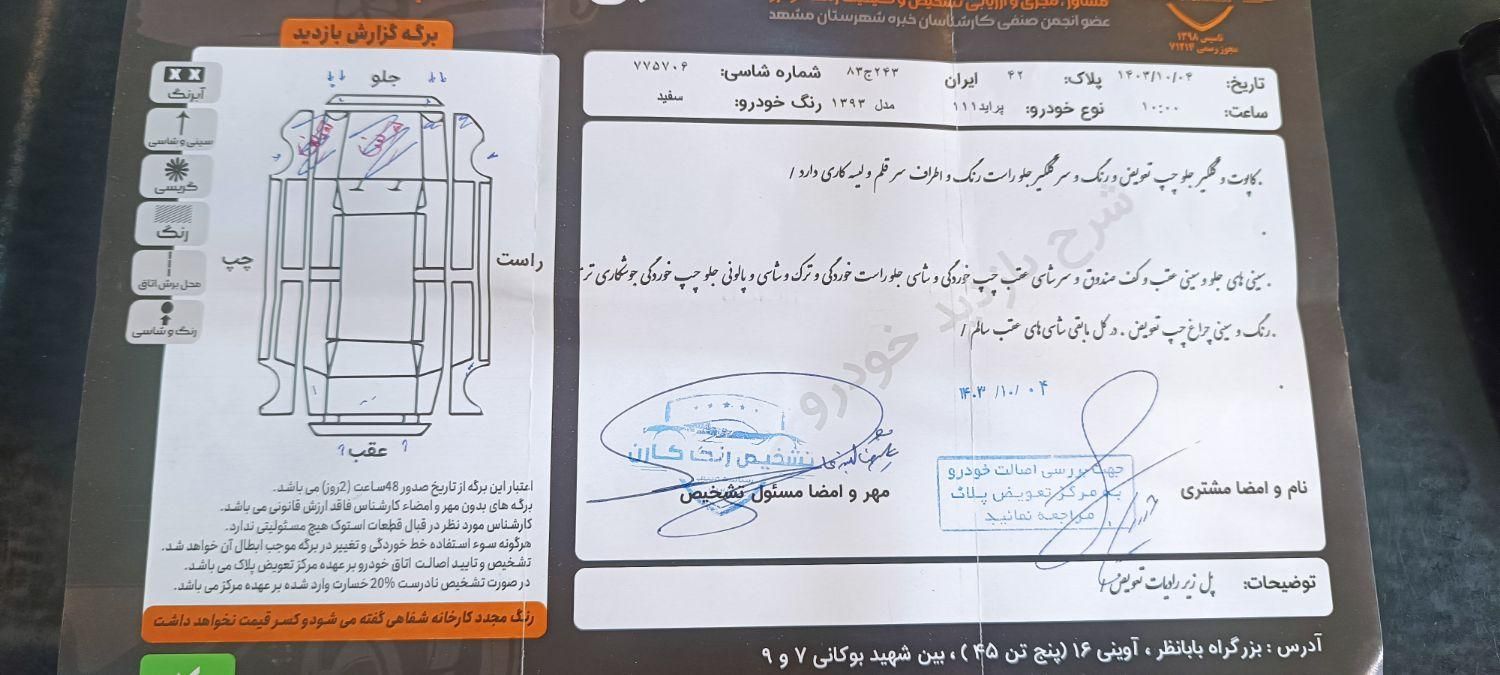 عضو انجمن صنفی کارشناسان خبره شهرستان مشهد
تاسیس ۱۳۹۸
مجوز رسمی ۷۱۲۱۴
برگه گزارش بازدید
تاریخ: ۱۴۰۳/۱۰/۰۴ پلاک: ۴۲ ایران ۲۴۳ج۸۳ شماره شاسی: ۷۷۵۷۰۶
ساعت: ۱۰:۰۰ نوع خودرو: پراید۱۱۱ مدل ۱۳۹۳ رنگ خودرو: سفید
.کاپوت و گلگیر جلو چپ تعویض و رنگ و سر گلگیر جلو راست رنگ و اطراف سر قلم و لیسه کاری دارد /
.سینی های جلو و سینی عقب و کف صندوق و سر شاسی عقب چپ خوردگی و شاسی جلو راست خوردگی و ترک و شاسی و پالونی جلو چپ خوردگی جوشکاری
.رنگ و سینی چراغ چپ تعویض . در کل مابقی شاسی های عقب سالم /
شرح بازدید خودرو
۱۴۰۳/۱۰/۰۴
تشخیص رنگ کارن
مهر و امضا مسئول تشخیص
جهت بررسی اصالت خودرو
به مرکز تعویض پلاک
مراجعه نمائید
نام و امضا مشتری
توضیحات: پل زیر رادیات تعویض
آدرس : بزرگراه بابانظر ، آوینی ۱۶ (پنج تن ۴۵ ) ، بین شهید بوکانی ۷ و ۹
XX
آبرنگ
سینی و شاسی
گریسی
رنگ
محل برش اتاق
رنگ و شاسی
جلو
چپ
راست
عقب
اعتبار این برگه از تاریخ صدور 48ساعت (2روز) می باشد.
برگه های بدون مهر و امضاء کارشناس فاقد ارزش قانونی می باشد.
کارشناس مورد نظر در قبال قطعات استوک هیچ مسئولیتی ندارد.
هرگونه سوء استفاده خط خوردگی و تغییر در برگه موجب ابطال آن خواهد شد.
تشخیص و تایید اصالت اتاق خودرو بر عهده مرکز تعویض پلاک می باشد.
در صورت تشخیص نادرست 20% خسارت وارد شده بر عهده مرکز می باشد.
رنگ مجدد کارخانه شفاهی گفته می شود و کسر قیمت نخواهد داشت